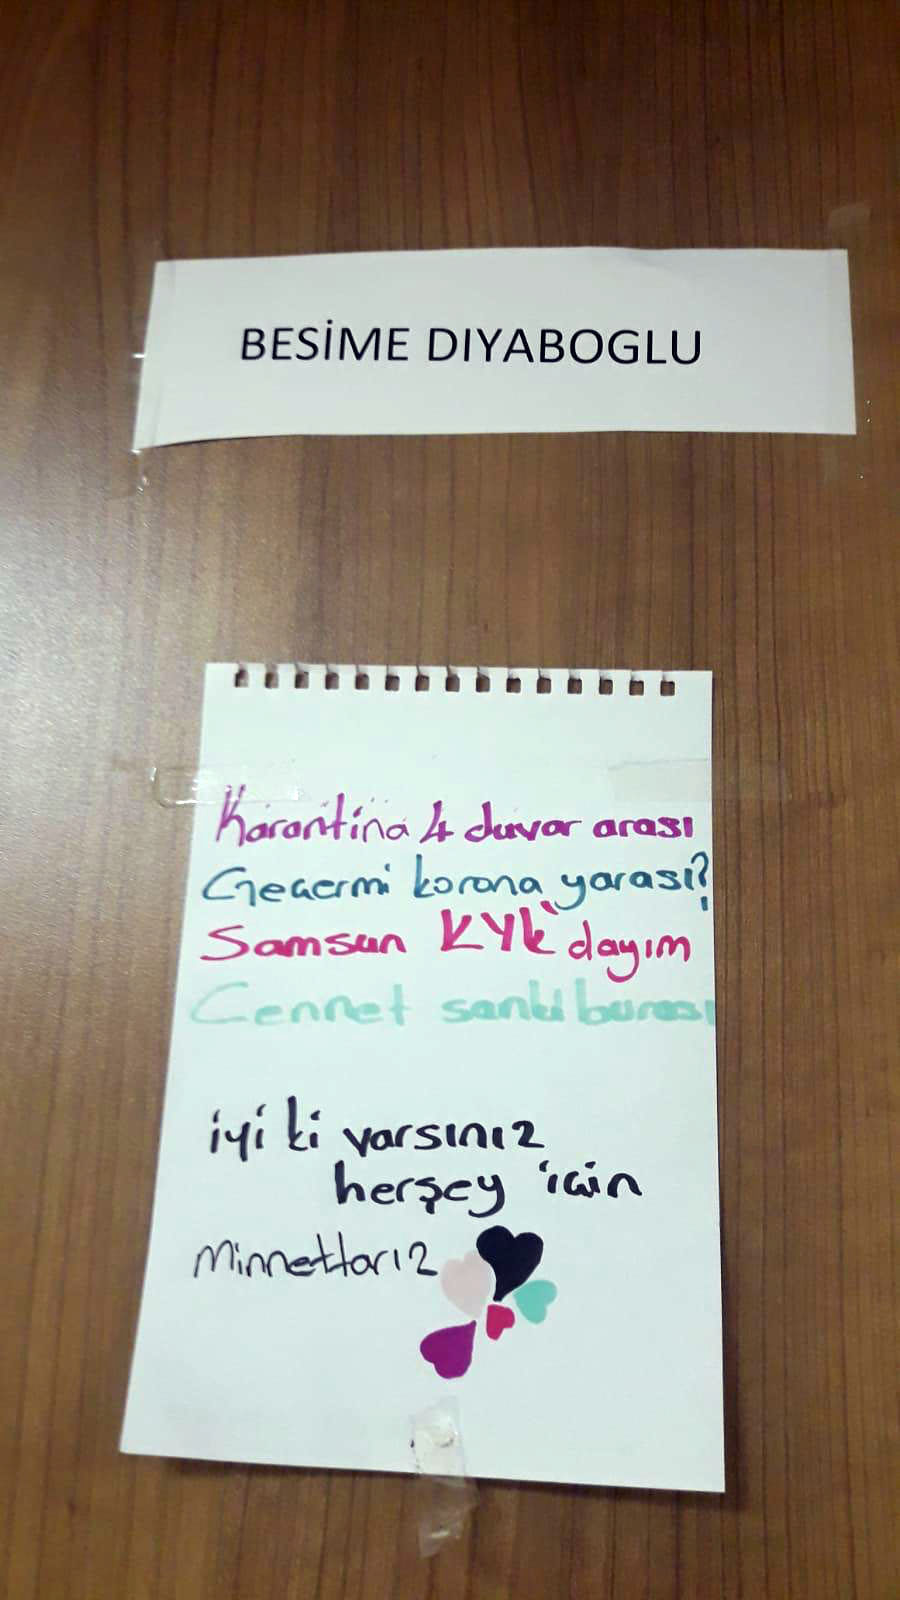 BESİME DIYABOGLU
Karantina 4 duvar arası
Geçermi korona yarası?
Samsun KYK'dayım
Cennet sanki burası
iyi ki varsınız
herşey için
Minnettarız